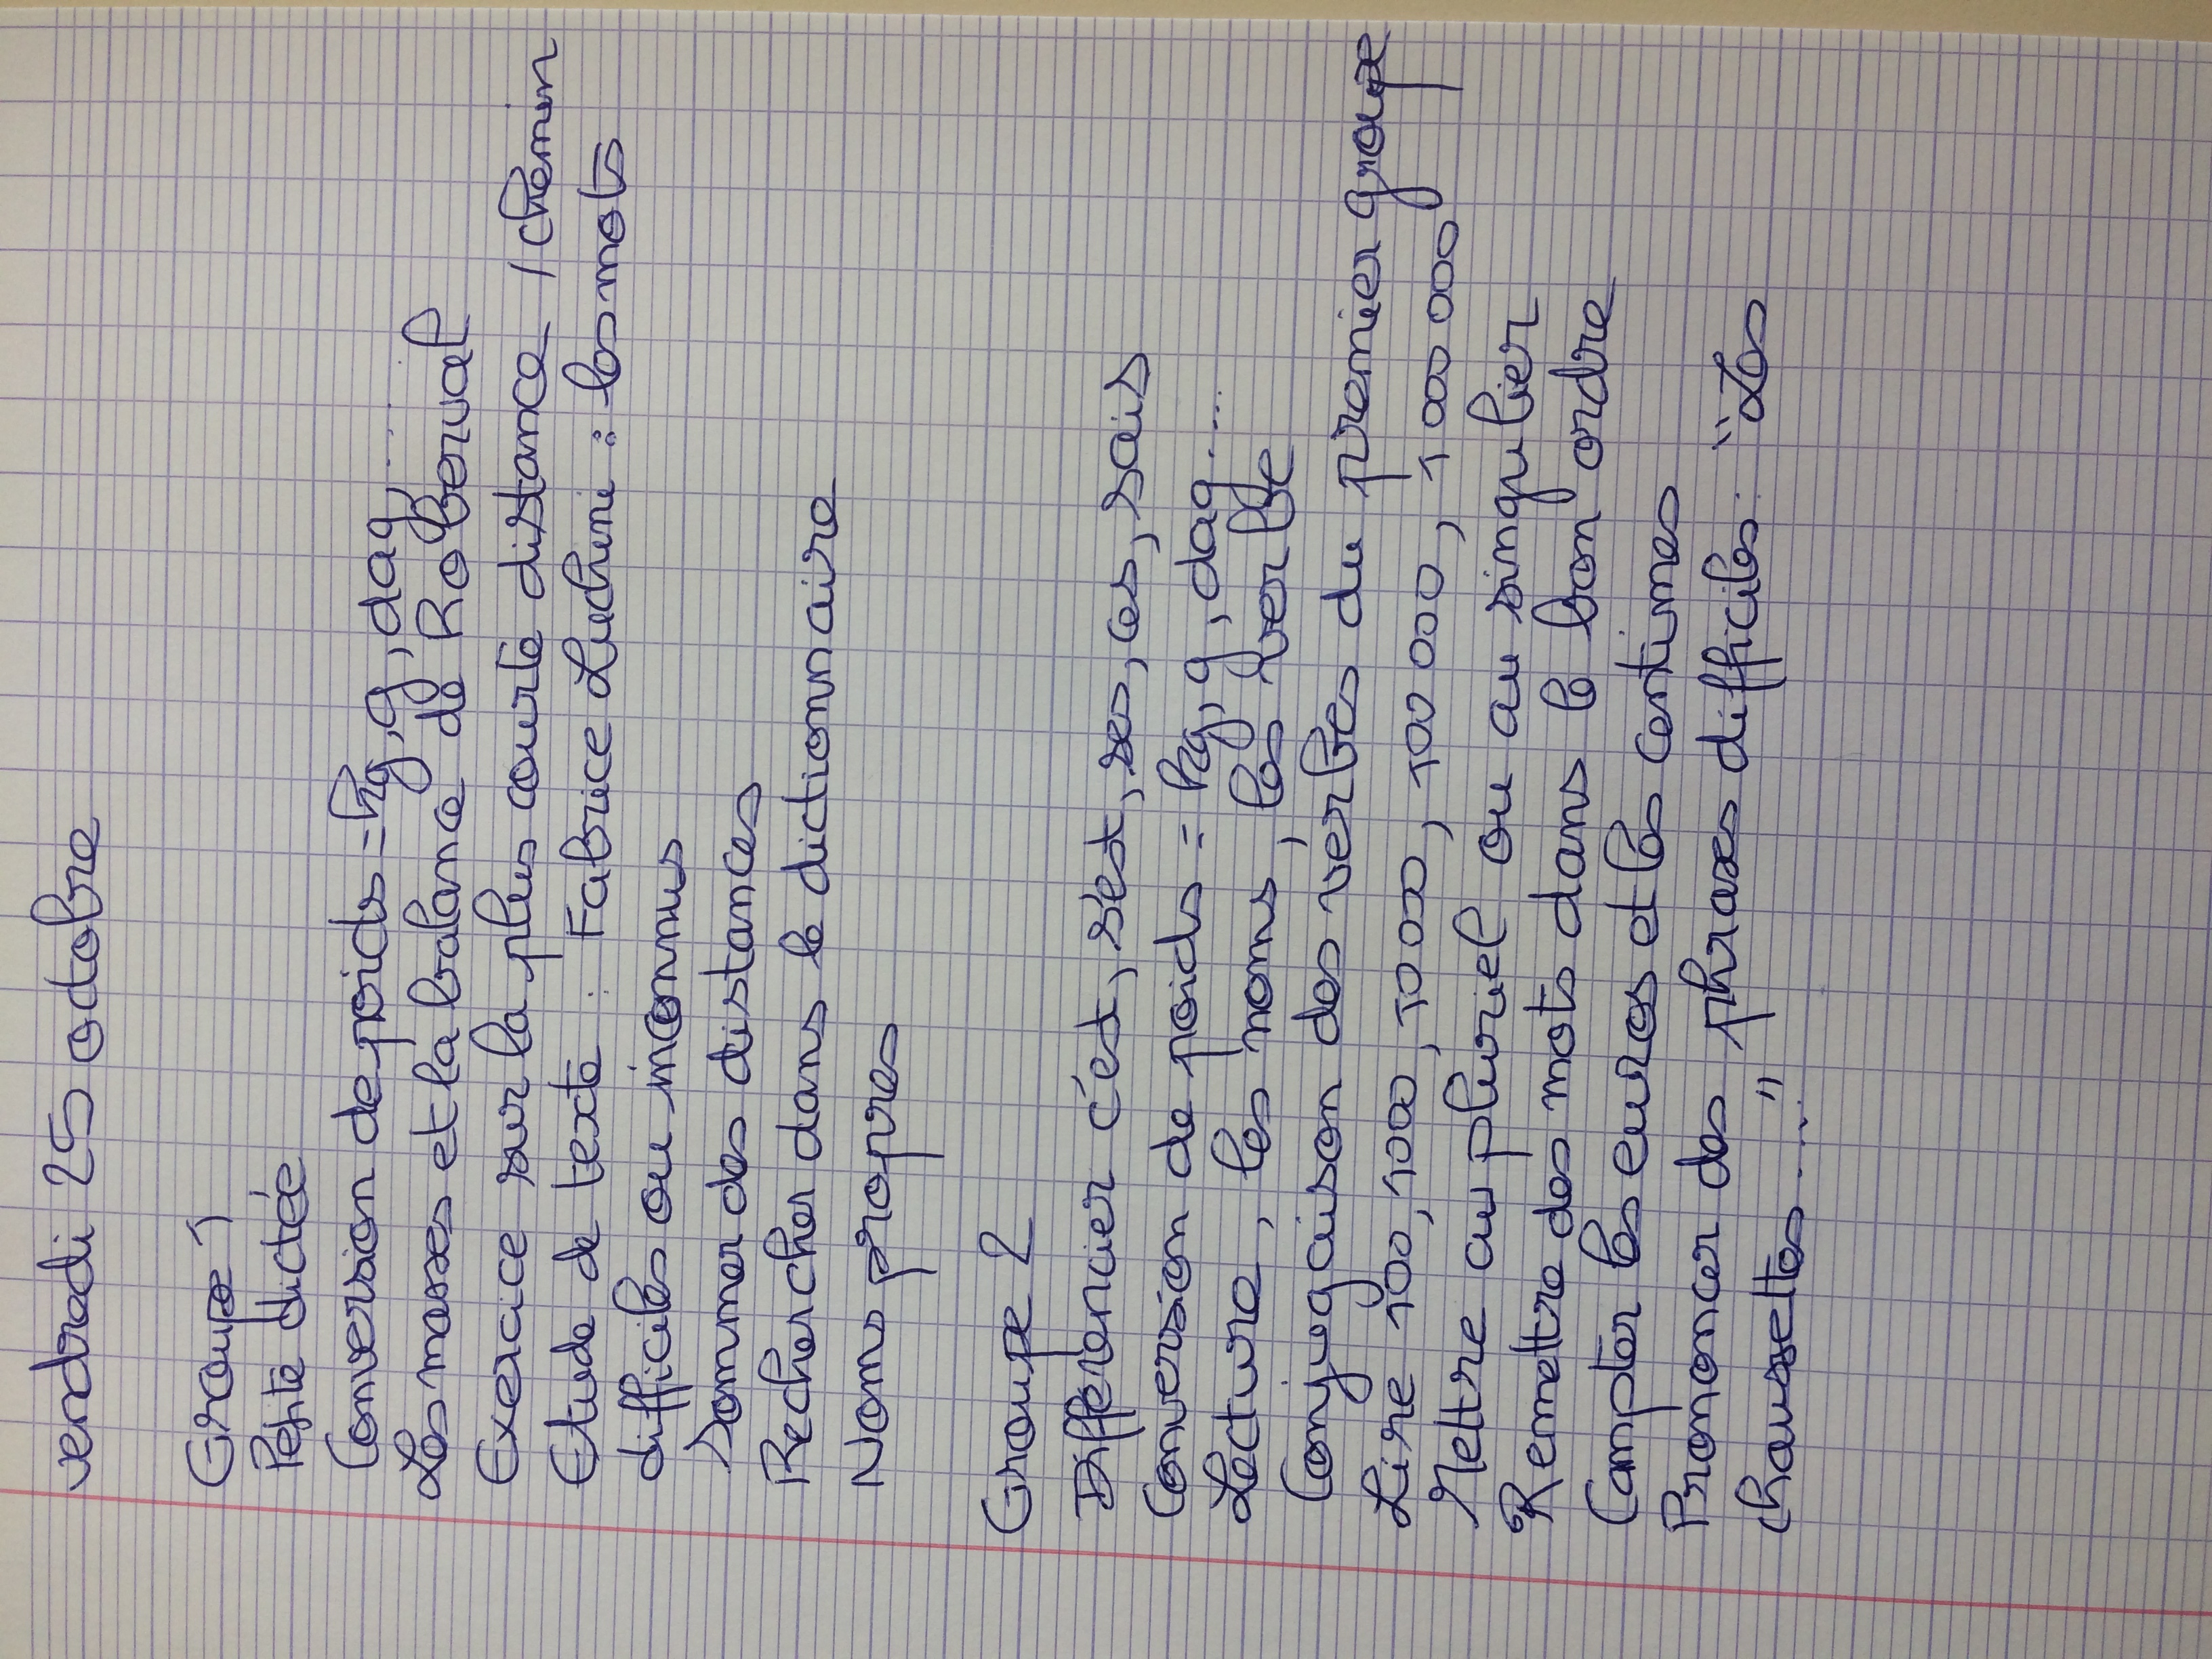 vendredi 25 octobre
Groupe 1
Petite dictée
Conversion de poids = kg, g, dag.....
Les masses et la balance de Roberval
Exercice sur la plus courte distance / chemin
Etude de texte : Fabrice Luchini : les mots
difficiles ou inconnus
Sommer des distances
Rechercher dans le dictionnaire
Noms propres
Groupe 2
Différencier c'est, s'est, ses, ces, sais
Conversion de poids = kg, g, dag....
Lecture, les noms, les verbe
Conjugaison des verbes du premier groupe
Lire 100, 1000, 10 000, 100 000, 1 000 000
Mettre au pluriel ou au singulier
Remettre des mots dans le bon ordre
Compter les euros et les centimes
Prononcer des phrases difficiles : "Les
chaussettes...."